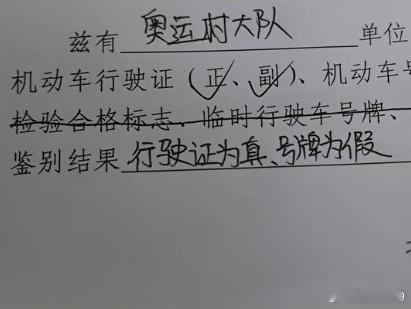 兹有 奥运村大队 单位
机动车行驶证（正、副）、机动车号
检验合格标志、临时行驶车号牌、
鉴别结果 行驶证为真、号牌为假